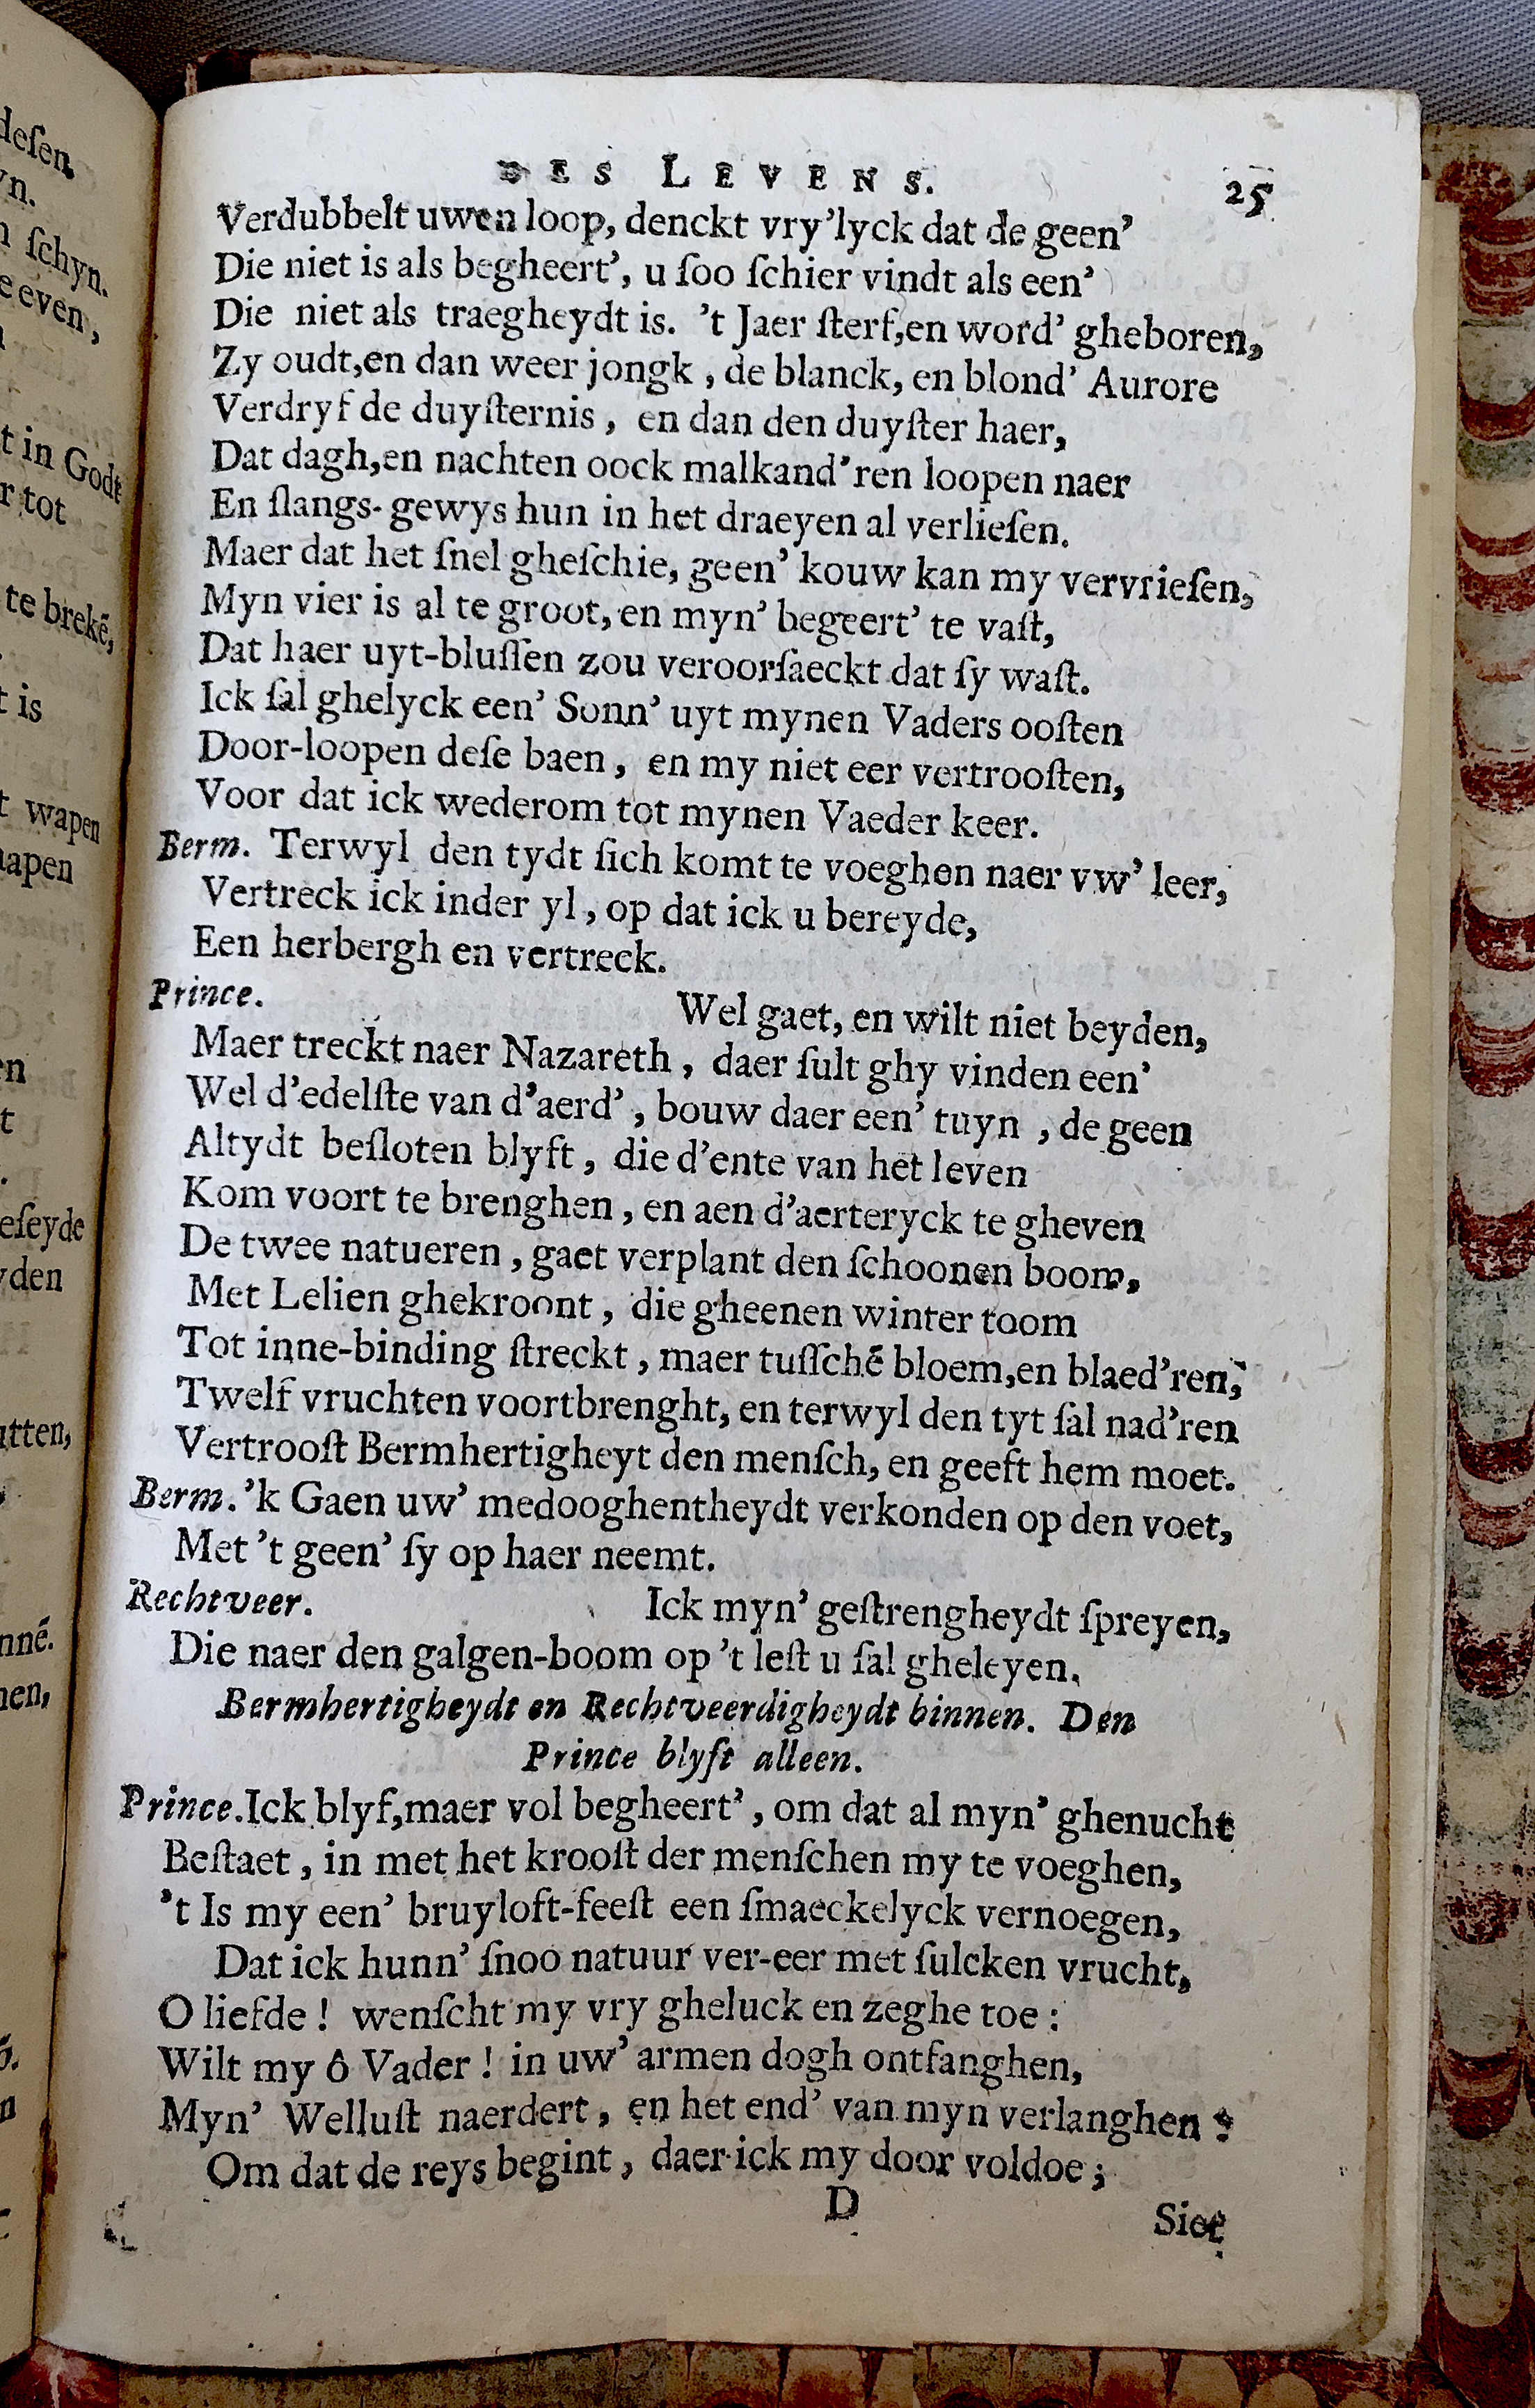 desen,
yn.
n schyn.
e even,
t in Godt
r tot
te brekē,
t is
t wapen
apen
en
t
eseyde
yden
utten,
nnē.
nen,
DES LEVENS. 25
Verdubbelt uwen loop, denckt vry'lyck dat de geen'
Die niet is als begheert', u ſoo ſchier vindt als een'
Die niet als traegheydt is. 't Jaer ſterf,en word' gheboren,
Zy oudt,en dan weer jongk, de blanck, en blond' Aurore
Verdryf de duyſternis, en dan den duyſter haer,
Dat dagh,en nachten oock malkand'ren loopen naer
En ſlangs-gewys hun in het draeyen al verlieſen.
Maer dat het ſnel gheſchie, geen' kouw kan my vervrieſen,
Myn vier is al te groot, en myn' begeert' te vaſt,
Dat haer uyt-bluſſen zou veroorſaeckt dat ſy waſt.
Ick ſal ghelyck een' Sonn' uyt mynen Vaders ooſten
Door-loopen deſe baen, en my niet eer vertrooſten,
Voor dat ick wederom tot mynen Vaeder keer.
Berm. Terwyl den tydt ſich komt te voeghen naer vw' leer,
Vertreck ick inder yl, op dat ick u bereyde,
Een herbergh en vertreck.
Prince. Wel gaet, en wilt niet beyden,
Maer treckt naer Nazareth, daer ſult ghy vinden een'
Wel d'edelſte van d'aerd', bouw daer een' tuyn, de geen
Altydt beſloten blyft, die d'ente van het leven
Kom voort te brenghen, en aen d'aerteryck te gheven
De twee natueren, gaet verplant den ſchoonen boom,
Met Lelien ghekroont, die gheenen winter toom
Tot inne-binding ſtreckt, maer tuſſchē bloem,en blaed'ren,
Twelf vruchten voortbrenght, en terwyl den tyt ſal nad'ren
Vertrooſt Bermhertigheyt den menſch, en geeft hem moet.
Berm.'k Gaen uw' medooghentheydt verkonden op den voet,
Met 't geen' ſy op haer neemt.
Rechtveer. Ick myn' geſtrengheydt ſpreyen,
Die naer den galgen-boom op 't leſt u ſal gheleyen.
Bermhertigheydt en Rechtveerdigheydt binnen. Den
Prince blyft alleen.
Prince.Ick blyf,maer vol begheert', om dat al myn' ghenucht
Beſtaet, in met het krooſt der menſchen my te voeghen,
't Is my een' bruyloft-feeſt een ſmaeckelyck vernoegen,
Dat ick hunn' ſnoo natuur ver-eer met ſulcken vrucht,
O liefde! wenſcht my vry gheluck en zeghe toe:
Wilt my ô Vader! in uw' armen dogh ontfanghen,
Myn' Welluſt naerdert, en het end' van myn verlanghen:
Om dat de reys begint, daer ick my door voldoe;
D
Siet